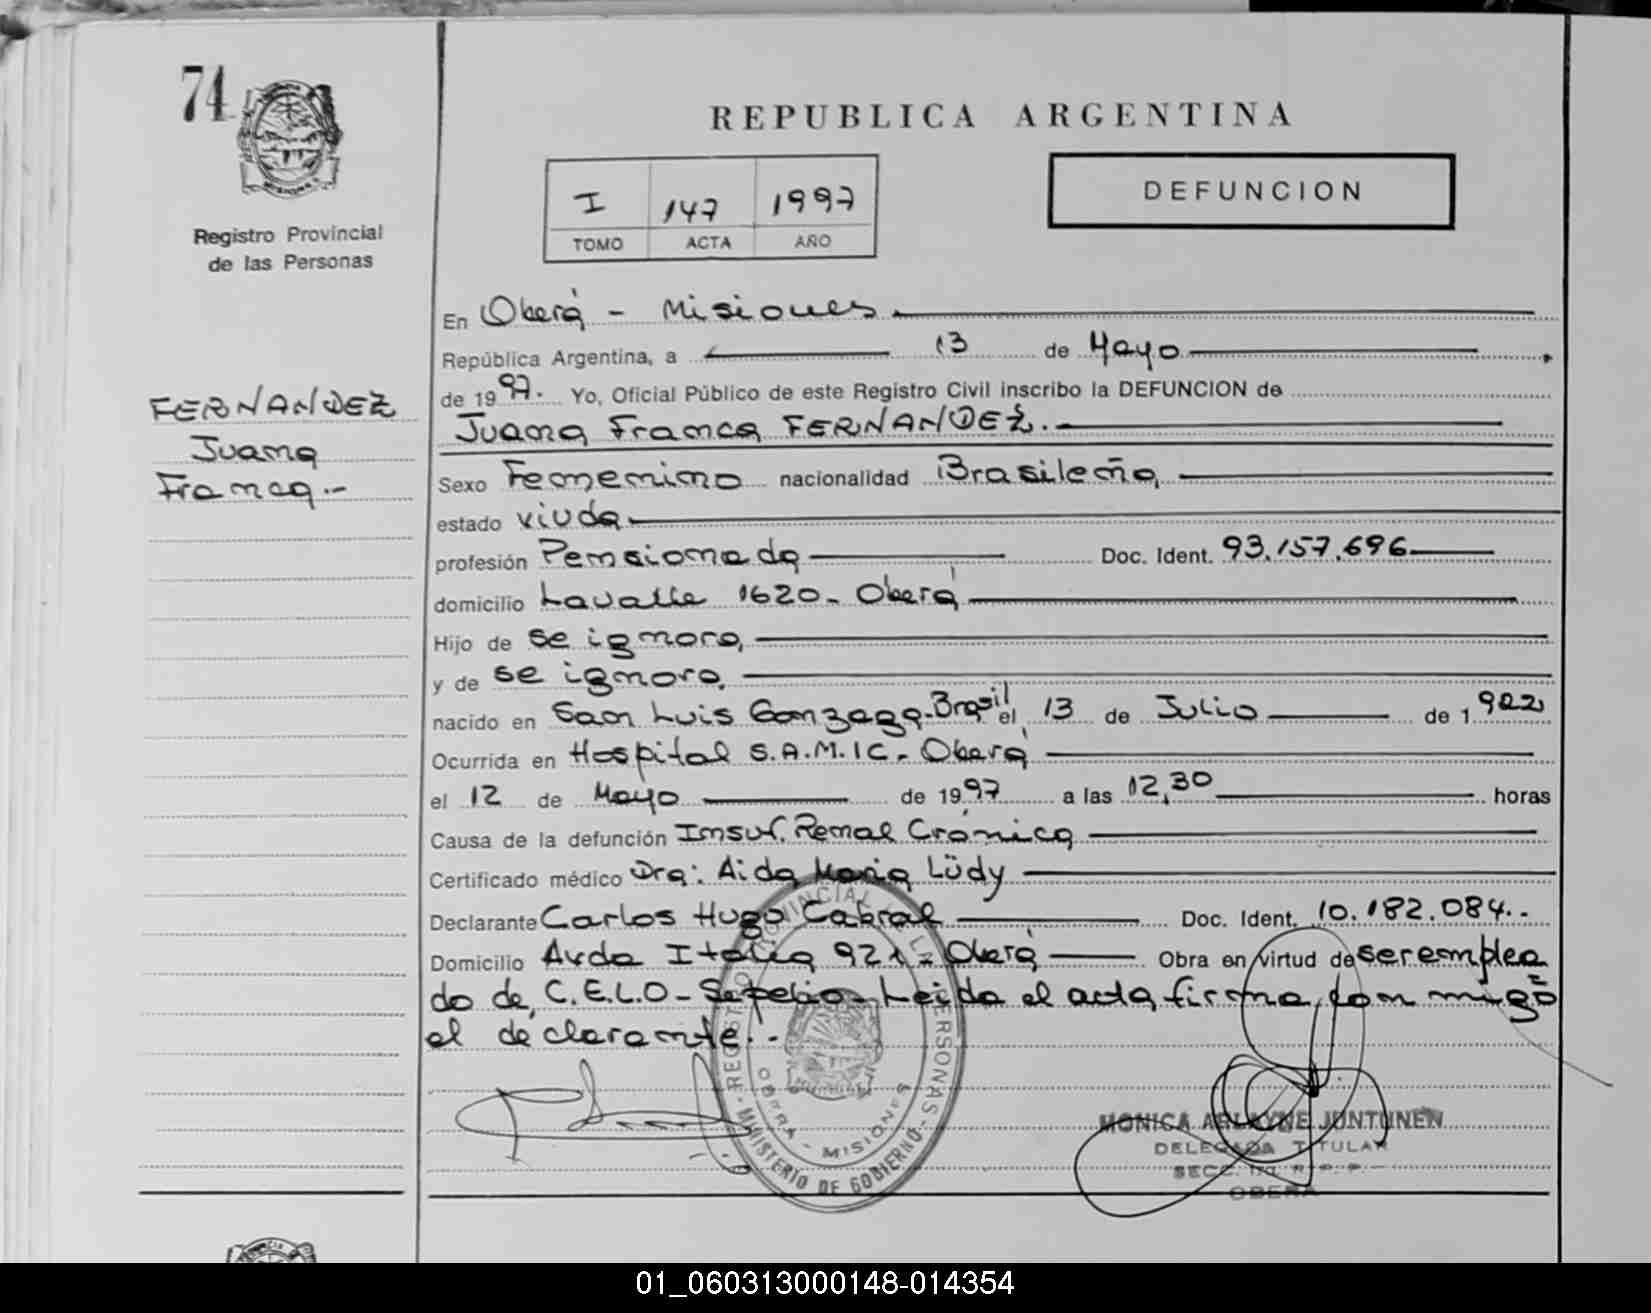 74
REPUBLICA ARGENTINA
Registro Provincial
de las Personas
I 147 1997
TOMO ACTA AÑO
DEFUNCION
FERNANDEZ
Juana
Franca.-
En Oberá - Misiones
República Argentina, a 13 de Mayo
de 1997. Yo, Oficial Público de este Registro Civil inscribo la DEFUNCION de
Juana Franca FERNANDEZ.
Sexo Femenino nacionalidad Brasileña,
estado viuda
profesión Pensionada Doc. Ident. 93.157.696
domicilio Lavalle 1620 - Oberá
Hijo de se ignora,
y de se ignora.
nacido en San Luis Gonzaga-Brasil el 13 de Julio de 1922
Ocurrida en Hospital S.A.M.IC. Oberá
el 12 de Mayo de 1997 a las 12,30 horas
Causa de la defunción Insuf. Renal Crónica
Certificado médico Dra: Aida Maria Lüdy
Declarante Carlos Hugo Cabral Doc. Ident. 10.182.084..
Domicilio Avda Italia 921 - Oberá Obra en virtud de ser emplea
do de C.E.L.O - Sepelio - Leida el acta, firma, con migo
el declarante.-
REGISTRO PROVINCIAL DE LAS PERSONAS - MINISTERIO DE GOBIERNO -
OBERA - MISIONES
MONICA ARLAYNE JUNTUNEN
DELEGADA TITULAR
OBERA
01_060313000148-014354